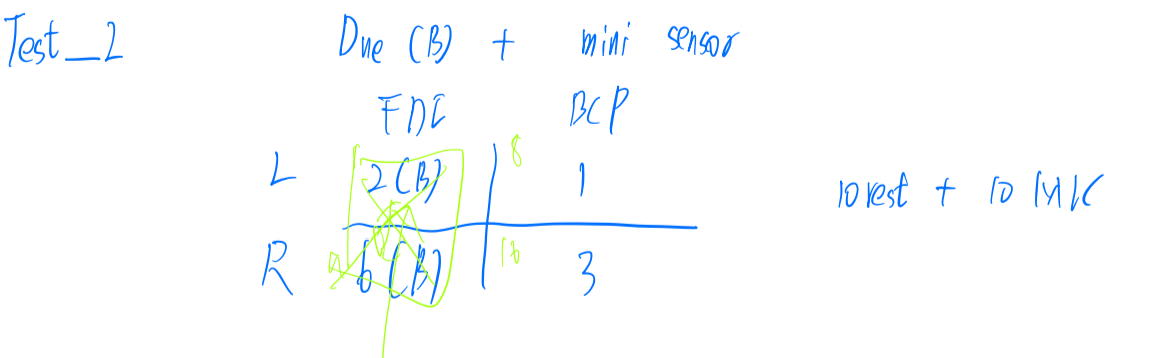 Test_2 Due (B) + mini sensor
FDI BCP
L 2 (B) 8 1
R 6 (B) 16 3
10 rest + 10